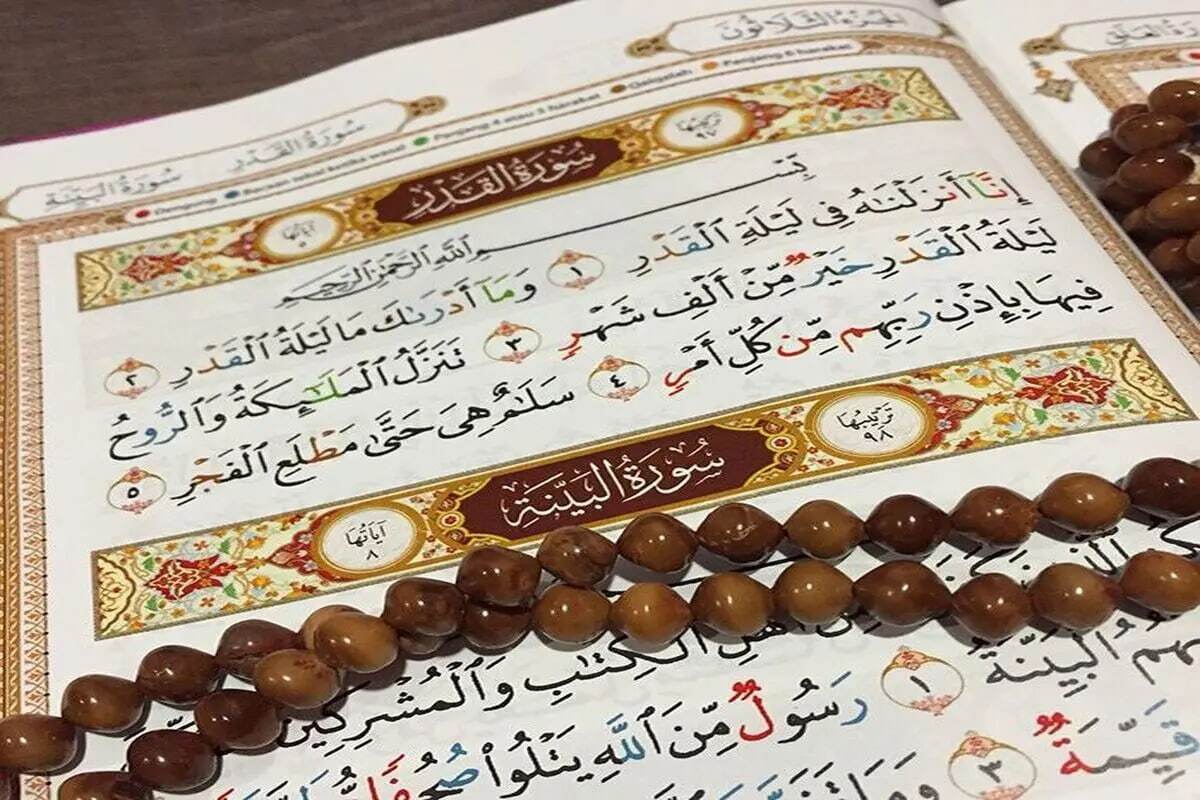 الجزء الثلاثون
سورة القدر
سورة البينة
Panjang 4 atau 5 harakat
Panjang 6 harakat
Qalqalah
ترتيبها ٩٧
سُورَةُ القَدْرِ
آياتها ٥
بِسْمِ ٱللَّهِ ٱلرَّحْمَٰنِ ٱلرَّحِيمِ
إِنَّآ أَنزَلْنَٰهُ فِى لَيْلَةِ ٱلْقَدْرِ ١ وَمَآ أَدْرَىٰكَ مَا لَيْلَةُ ٱلْقَدْرِ ٢
لَيْلَةُ ٱلْقَدْرِ خَيْرٌ مِّنْ أَلْفِ شَهْرٍ ٣ تَنَزَّلُ ٱلْمَلَٰٓئِكَةُ وَٱلرُّوحُ
فِيهَا بِإِذْنِ رَبِّهِم مِّن كُلِّ أَمْرٍ ٤ سَلَٰمٌ هِىَ حَتَّىٰ مَطْلَعِ ٱلْفَجْرِ ٥
ترتيبها ٩٨
سُورَةُ البَيِّنَةِ
آياتها ٨
أَهْلِ ٱلْكِتَٰبِ وَٱلْمُشْرِكِينَ
ٱلْبَيِّنَةُ ١ رَسُولٌ مِّنَ ٱللَّهِ يَتْلُوا۟ صُحُفًا
قَيِّمَةٌ ٣ وَمَا